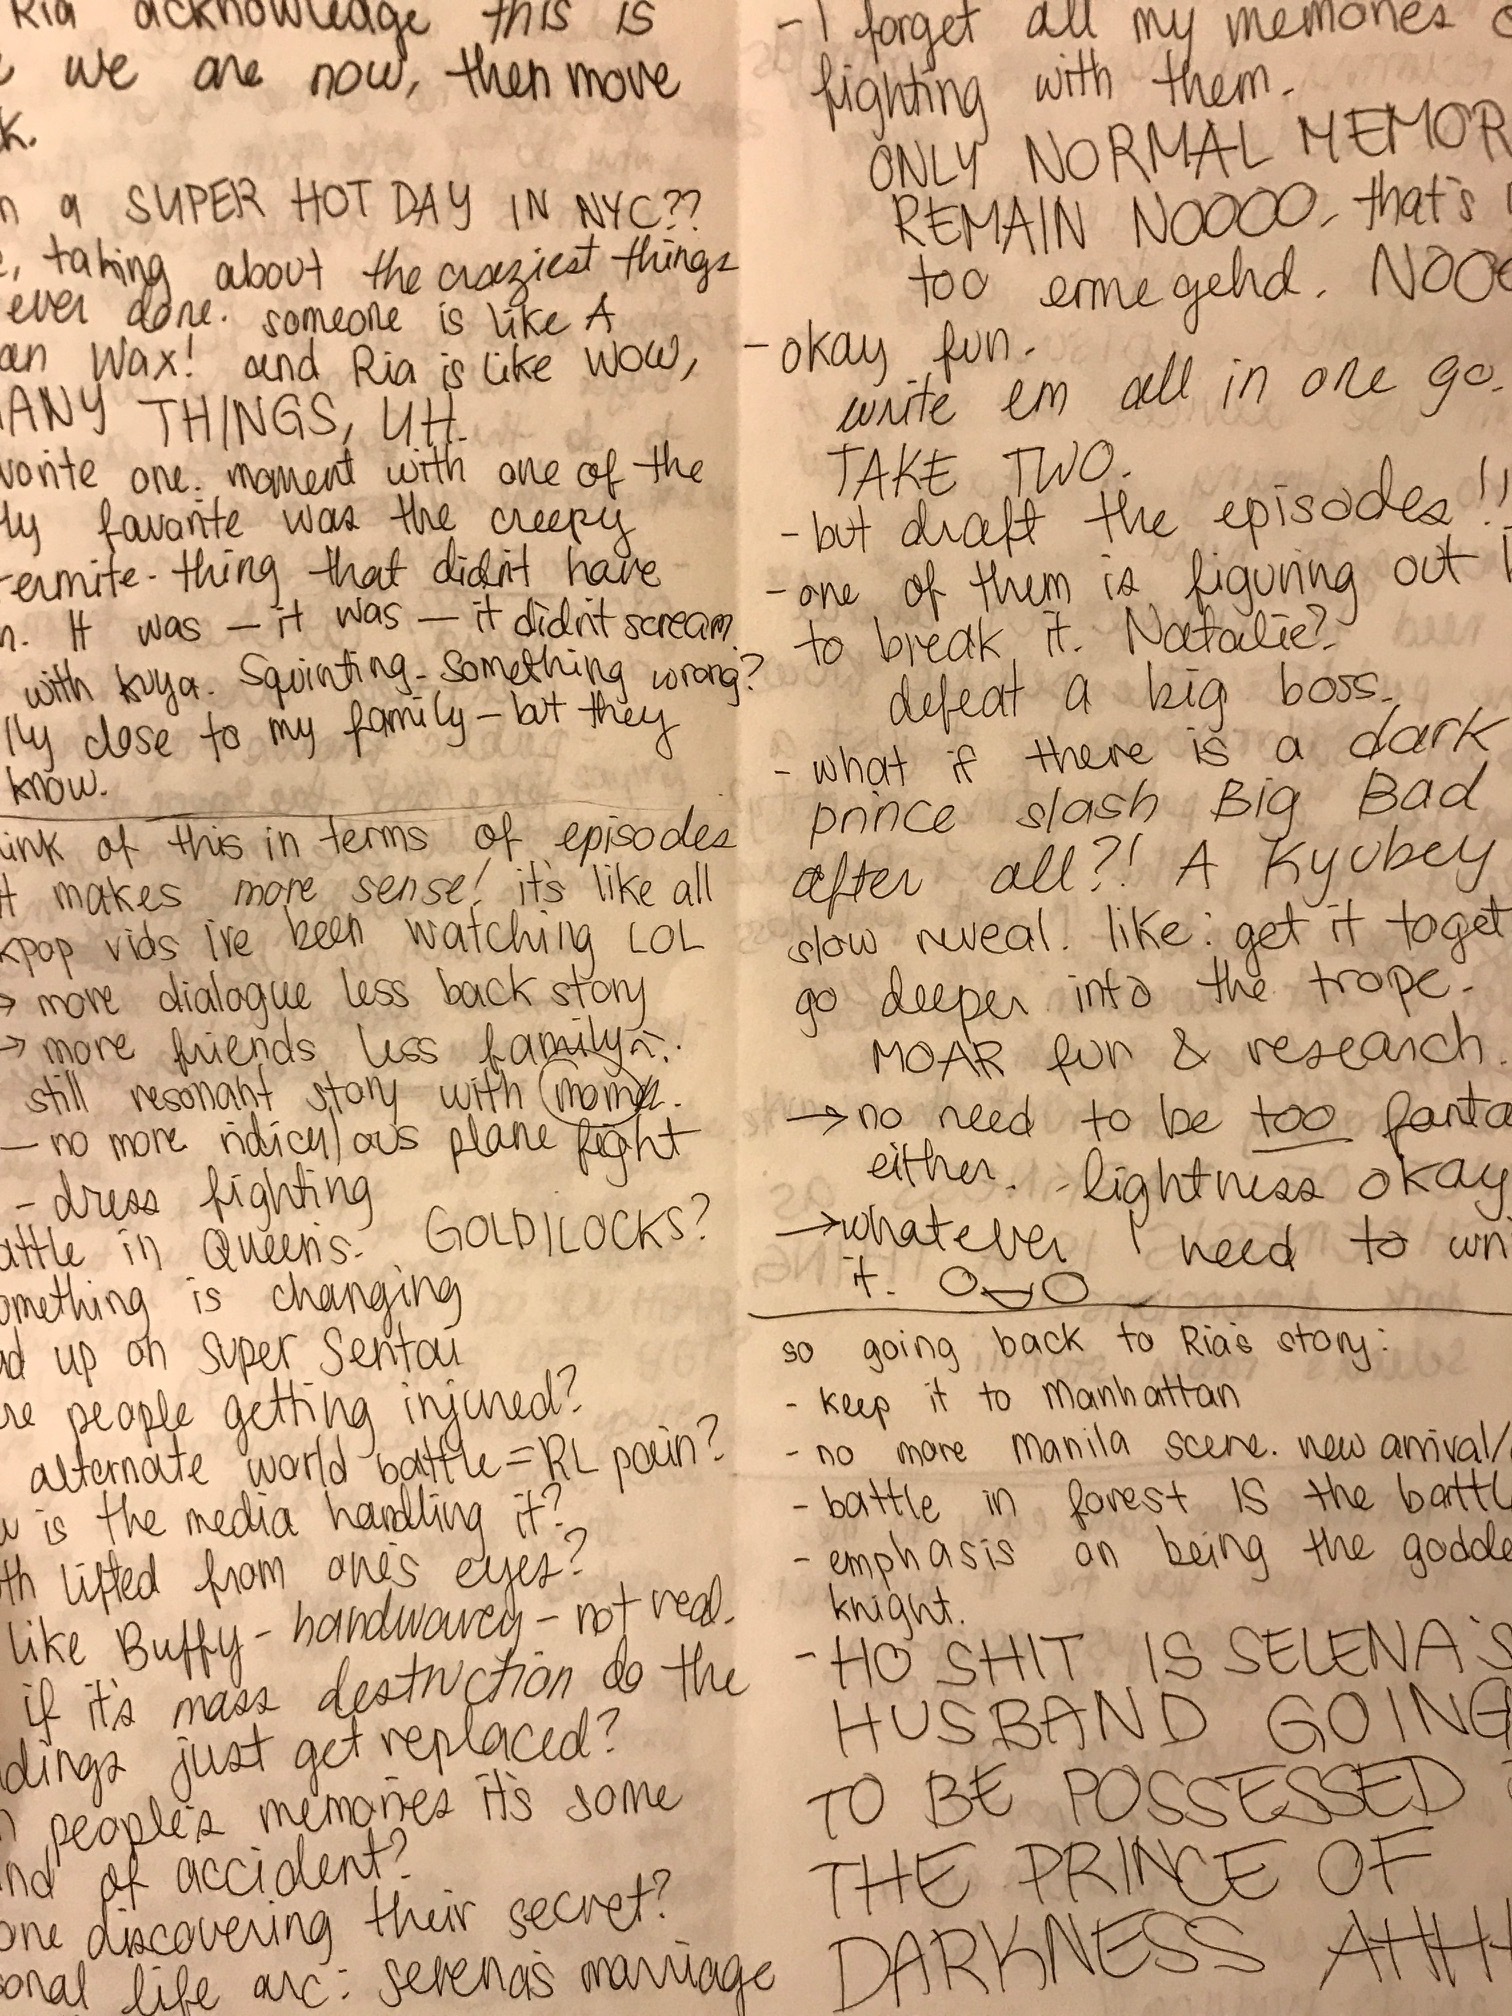 Ria acknowledge this is
we are now, then move
k.
n a SUPER HOT DAY IN NYC??
e, taking about the craziest things
ever done. someone is like A
an Wax! and Ria is like WOW,
ANY THINGS, UH.
vorite one. moment with one of the
lly favorite was the creepy
termite-thing that didn't have
n. It was — it was — it didn't scream.
with kuya. Squinting. Something wrong?
lly close to my family — but they
know.
ink of this in terms of episodes
it makes more sense! it's like all
kpop vids ive been watching LOL
→ more dialogue less back story
→ more friends less family
still resonant story with moms.
— no more ridiculous plane fight
- dress fighting
attle in Queens. GOLDILOCKS?
omething is changing
ad up on Super Sentai
re people getting injured?
alternate world battle = RL pain?
w is the media handling it?
th lifted from one's eyes?
like Buffy - handwavey - not real.
if it's mass destruction do the
dings just get replaced?
n people's memories it's some
nd of accident?
one discovering their secret?
sonal life arc: serena's marriage
- I forget all my memories o
fighting with them.
ONLY NORMAL MEMOR
REMAIN NOOOO. that's
too erme gehd. NOOO
- okay fun.
write em all in one go.
TAKE TWO.
- but draft the episodes!!
- one of them is figuring out h
to break it. Natalie?
defeat a big boss.
- what if there is a dark
prince slash Big Bad
after all?! A Kyubey
slow reveal. like: get it toget
go deeper into the trope.
MOAR fun & research.
→ no need to be too fanta
either. - lightness okay
→ whatever I need to wri
it.
so going back to Ria's story:
- keep it to Manhattan
- no more Manila scene. new arrival/
- battle in forest IS the battl
- emphasis on being the godde
knight.
- HO SHIT IS SELENA'S
HUSBAND GOING
TO BE POSSESSED
THE PRINCE OF
DARKNESS AHHH